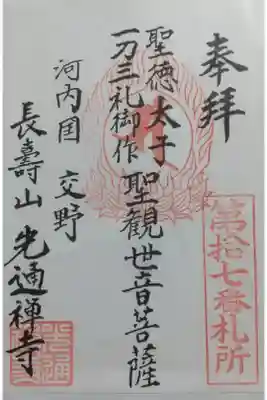 奉拝
第拾七番札所
聖徳太子
一刀三礼御作 聖観世音菩薩
河内国 交野
長壽山 光通禅寺